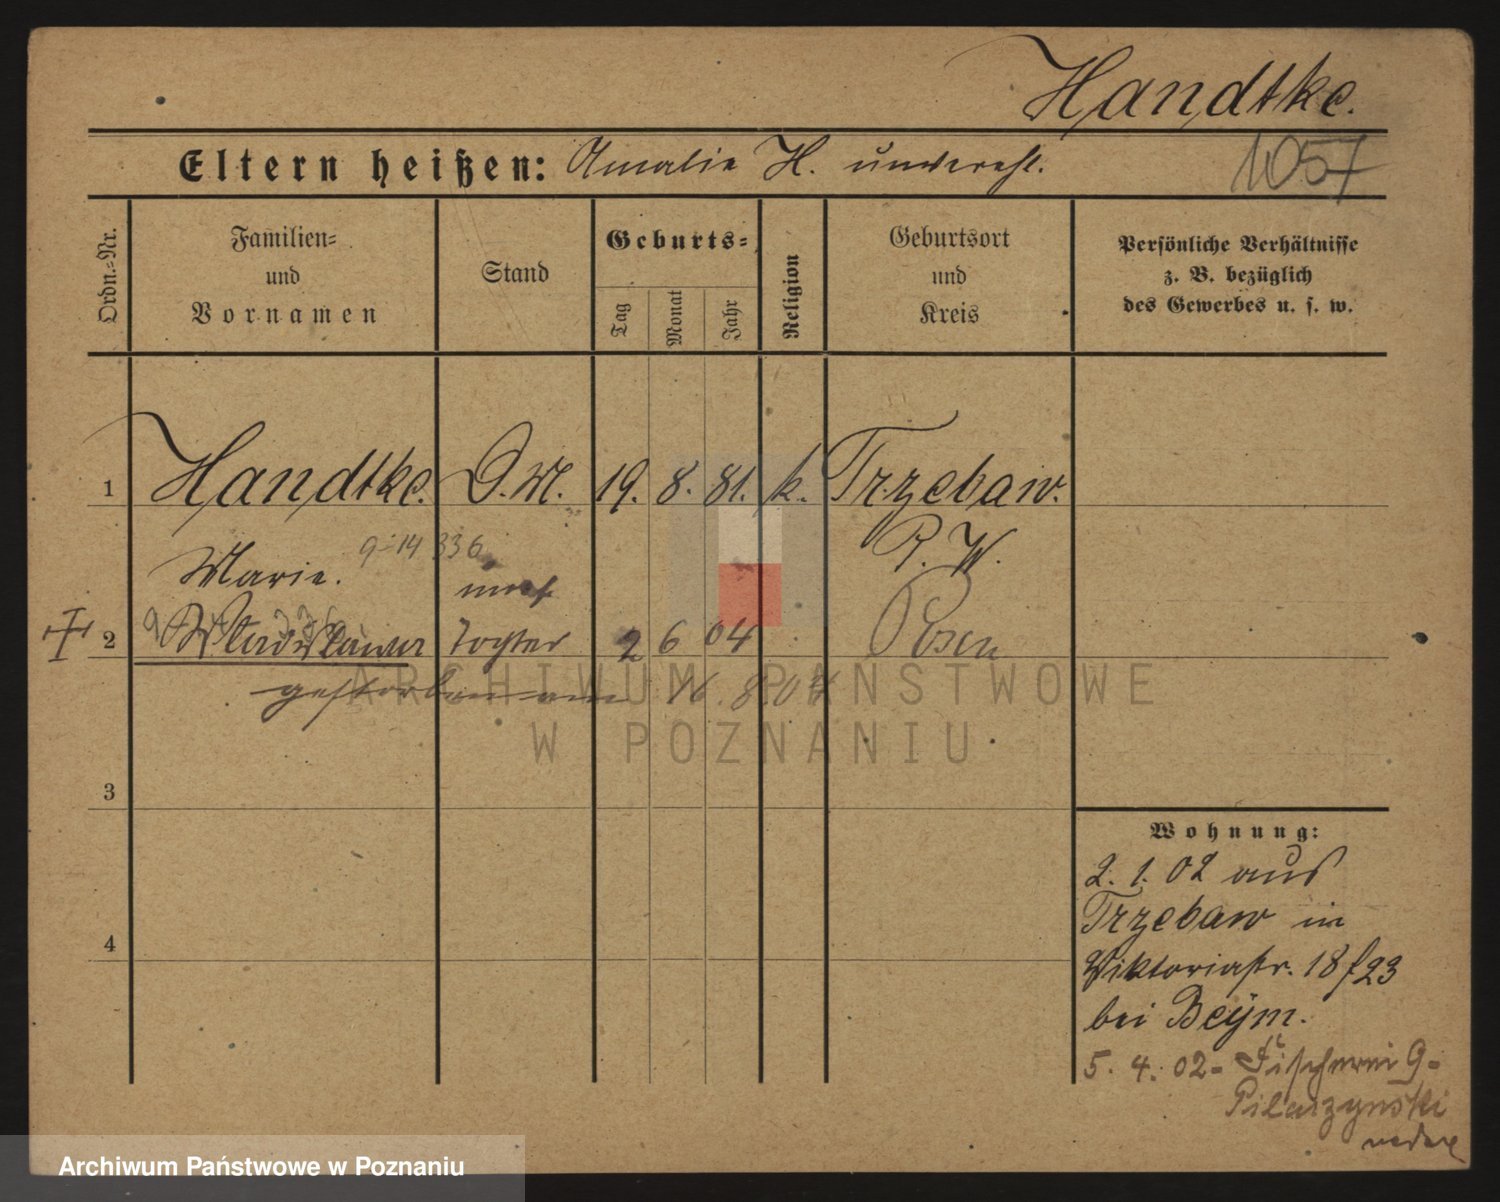 Handtke.
Eltern heißen: Amalie H. unverehl.
1057
Ordn.-Nr.
Familien-
und
Vornamen
Stand
Geburts-
Tag
Monat
Jahr
Religion
Geburtsort
und
Kreis
Persönliche Verhältnisse
z. B. bezüglich
des Gewerbes u. s. w.
1 Handtke. D.M. 19. 8. 81. k. Trzebaw.
P. W.
9-14 336
Marie.
2 Wladislawa Tochter 2 6 04 Posen
gestorben am 16. 8. 04
3
4
Wohnung:
2. 1. 02 aus
Trzebaw in
Viktoriastr. 18 f 23
bei Beÿm.
5. 4. 02- Fischerei 9-
Pilarzynski
ARCHIWUM PAŃSTWOWE
W POZNANIU
Archiwum Państwowe w Poznaniu